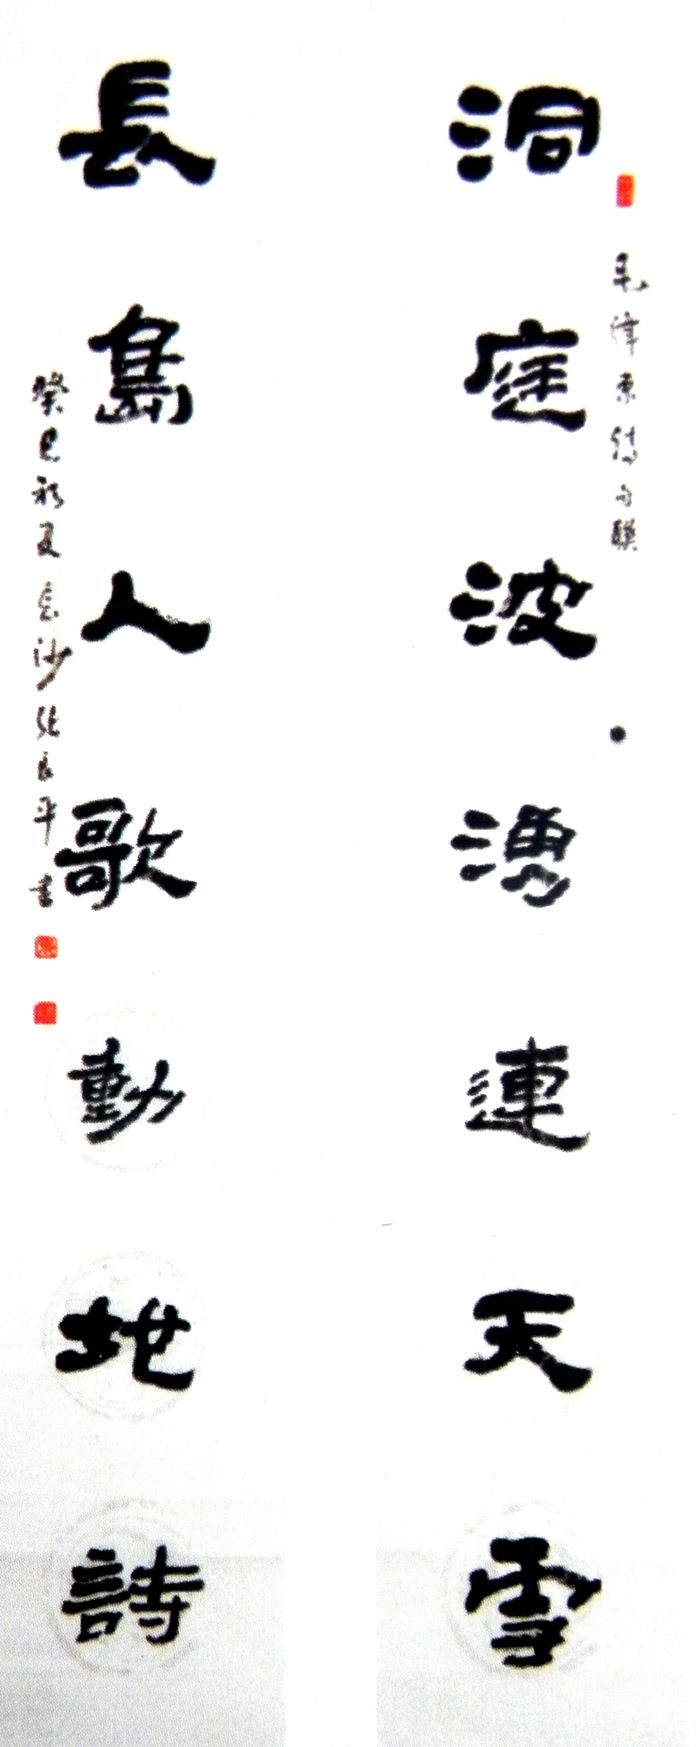 毛澤東詩句聯
洞庭波湧連天雪
長島人歌動地詩
癸巳初夏長沙張良平書